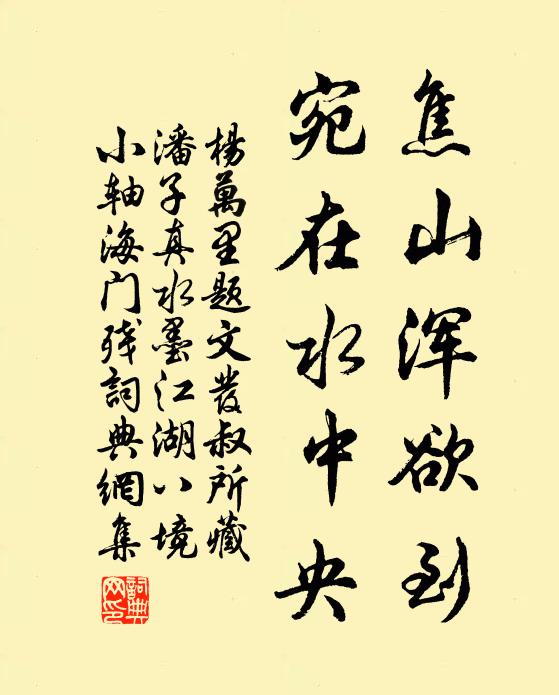 焦山浑欲到
宛在水中央
楊萬里题文發叔所藏
潘子真水墨江湖八境
小轴海门残詞典網集
詞典
网印